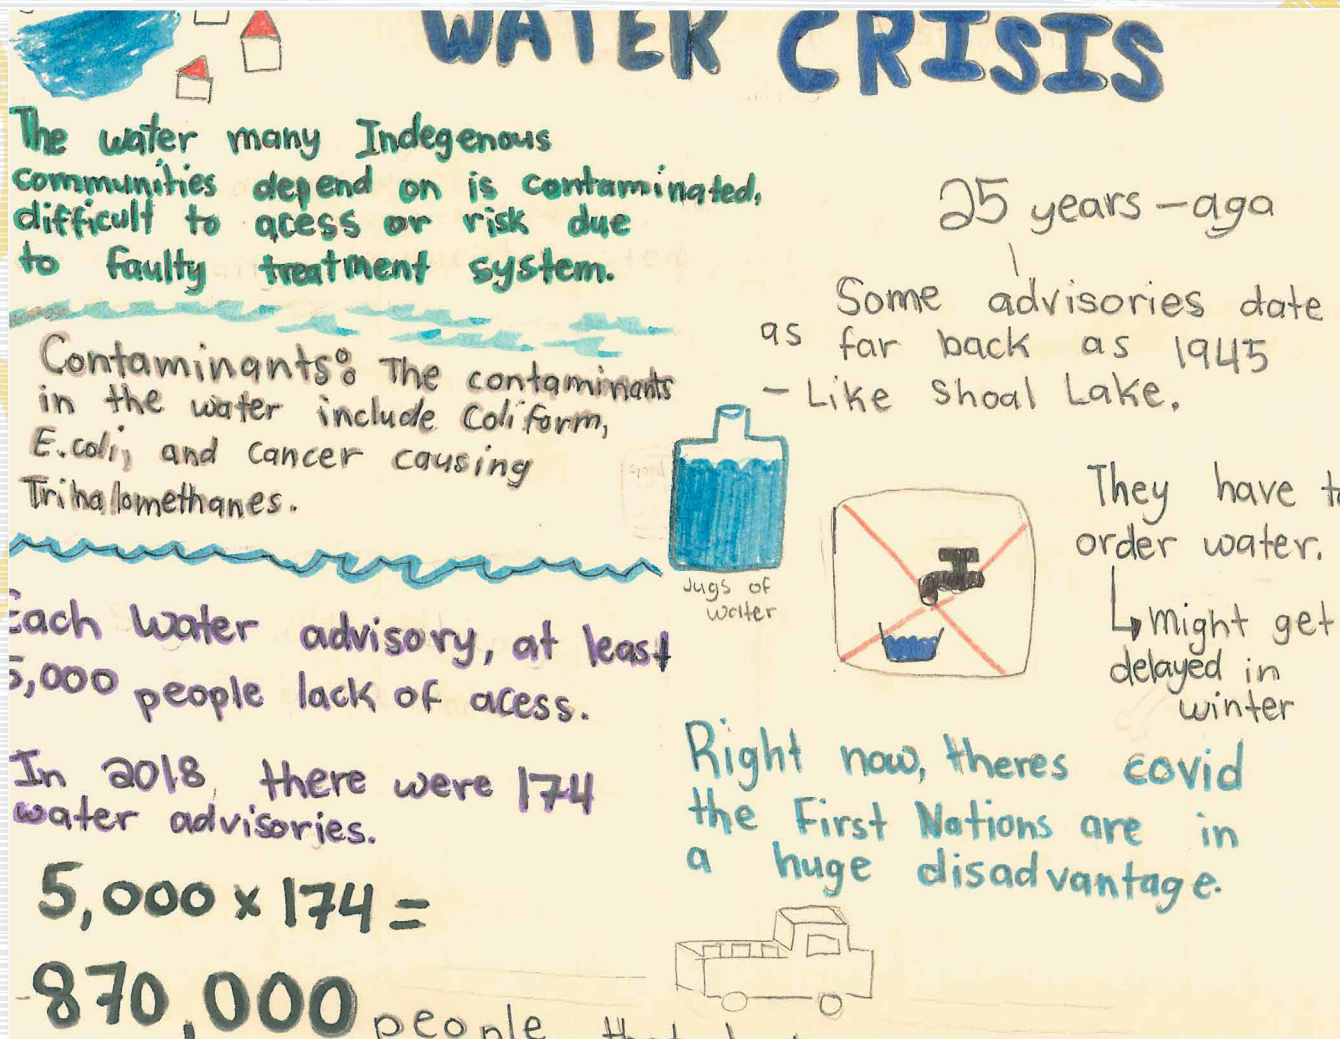 WATER CRISIS
The water many Indegenous
communities depend on is contaminated,
difficult to acess or risk due
to faulty treatment system.
Contaminants: The contaminants
in the water include Coliform,
E.coli, and cancer causing
Trihalomethanes.
Each Water advisory, at least
5,000 people lack of acess.
In 2018, there were 174
water advisories.
5,000 x 174 =
870,000 people
25 years - aga
Some advisories date
as far back as 1945
- Like Shoal Lake.
Jugs of
water
They have
order water.
might get
delayed in
winter
Right now, theres covid
the First Nations are in
a huge disadvantage.